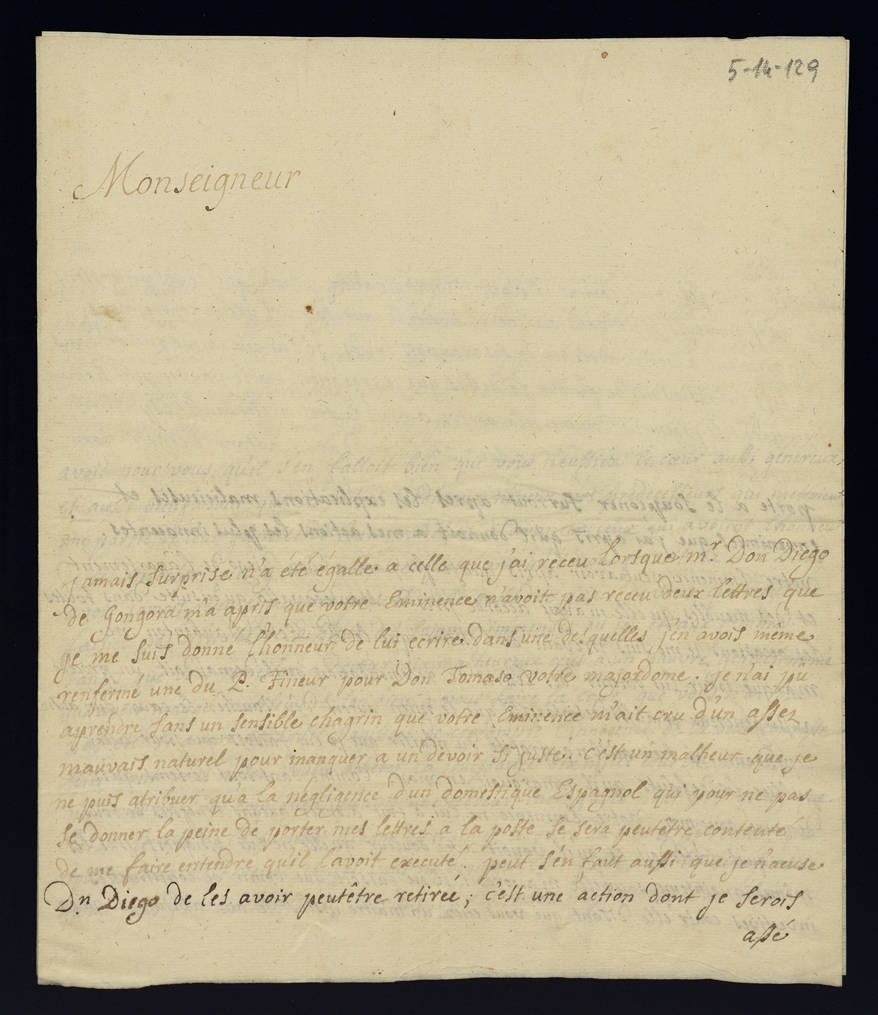 5-14-129
Monseigneur
jamais surprise n'a eté égalle a celle que j'ai receu lorsque mr Don Diego
de Gongora m'a apris que votre Eminence n'avoit pas receu deux lettres que
je me suis donné l'honneur de lui ecrire dans une desquelles j'en avois même
renfermé une du P. Fineur pour Don Tomaso votre majordome. je n'ai pu
aprendre sans un sensible chagrin que votre Eminence m'ait cru d'un assez
mauvais naturel pour manquer a un devoir si juste. c'est un malheur que je
ne puis atribuer qu'a la negligence d'un domestique Espagnol qui pour ne pas
se donner la peine de porter mes lettres a la poste se sera peutêtre contenté
de me faire entendre qu'il l'avoit executé. peut s'en faut aussi que je n'acuse
Dn Diego de les avoir peutêtre retireé; c'est une action dont je serois
assé